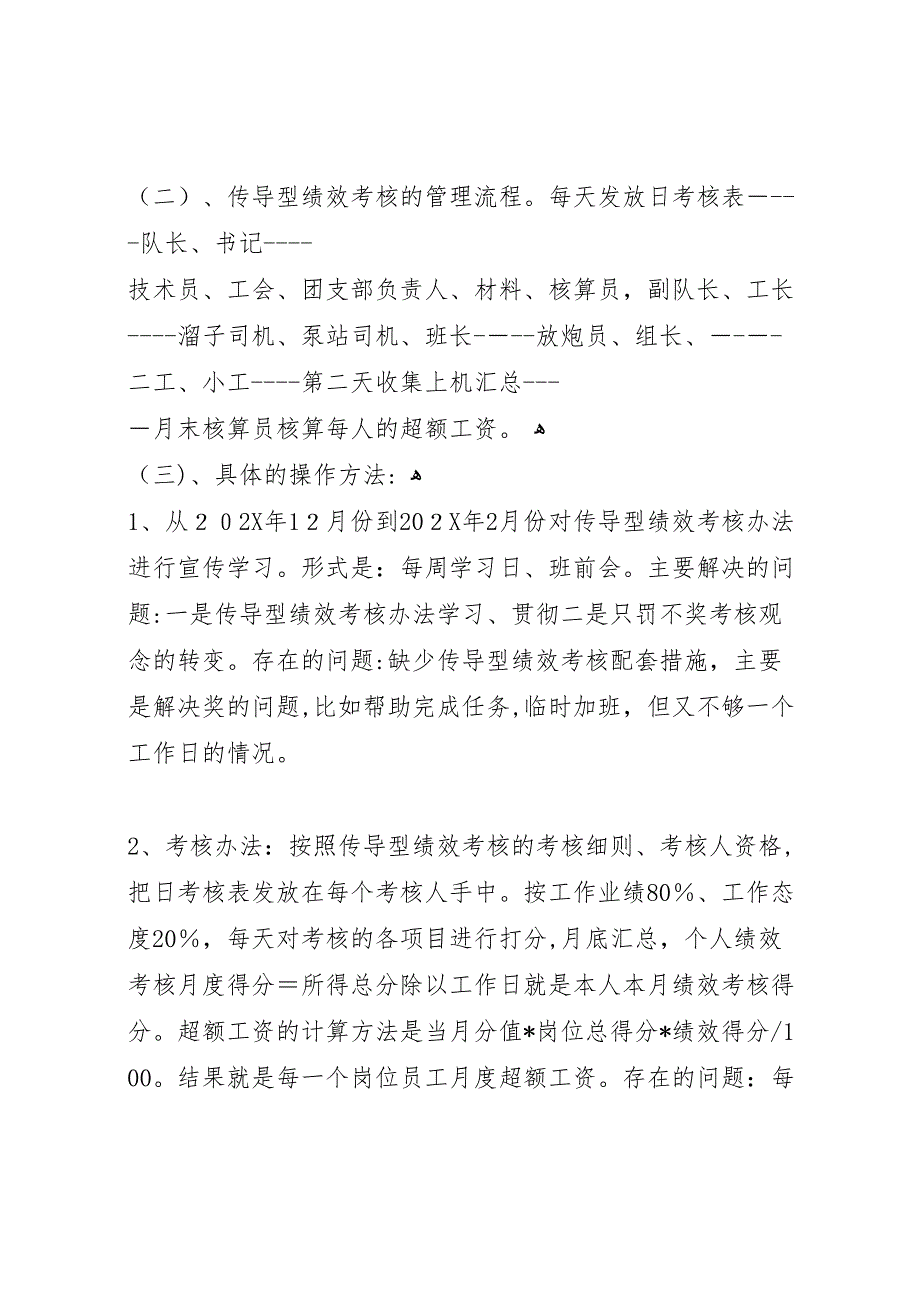 （二）、传导型绩效考核的管理流程。每天发放日考核表－---
-队长、书记----
技术员、工会、团支部负责人、材料、核算员，副队长、工长
----溜子司机、泵站司机、班长-－--放炮员、组长、－-－-
二工、小工----第二天收集上机汇总---
－月末核算员核算每人的超额工资。 ﻫ
（三)、具体的操作方法: ﻫ
1、从２０2X年1２月份到20２X年2月份对传导型绩效考核办法
进行宣传学习。形式是：每周学习日、班前会。主要解决的问
题:一是传导型绩效考核办法学习、贯彻二是只罚不奖考核观
念的转变。存在的问题:缺少传导型绩效考核配套措施，主要
是解决奖的问题,比如帮助完成任务,临时加班，但又不够一个
工作日的情况。
2、考核办法：按照传导型绩效考核的考核细则、考核人资格，
把日考核表发放在每个考核人手中。按工作业绩80％、工作态
度20％，每天对考核的各项目进行打分,月底汇总，个人绩效
考核月度得分＝所得总分除以工作日就是本人本月绩效考核得
分。超额工资的计算方法是当月分值*岗位总得分*绩效得分/1
00。结果就是每一个岗位员工月度超额工资。存在的问题：每